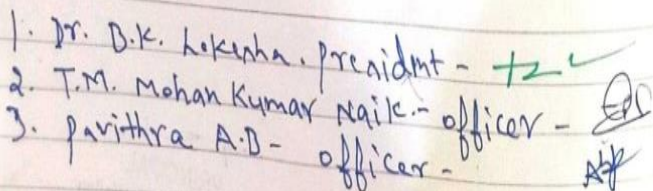 1. Dr. B.K. Lokesha. president -
2. T.M. Mohan Kumar Naik. - officer -
3. Pavithra A.B - officer -